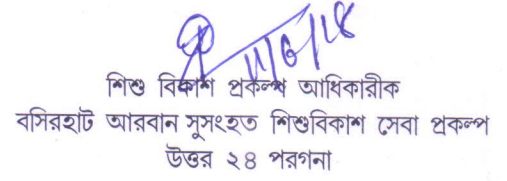 11/6/18
শিশু বিকাশ প্রকল্প আধিকারীক
বসিরহাট আরবান সুসংহত শিশুবিকাশ সেবা প্রকল্প
উত্তর ২৪ পরগনা